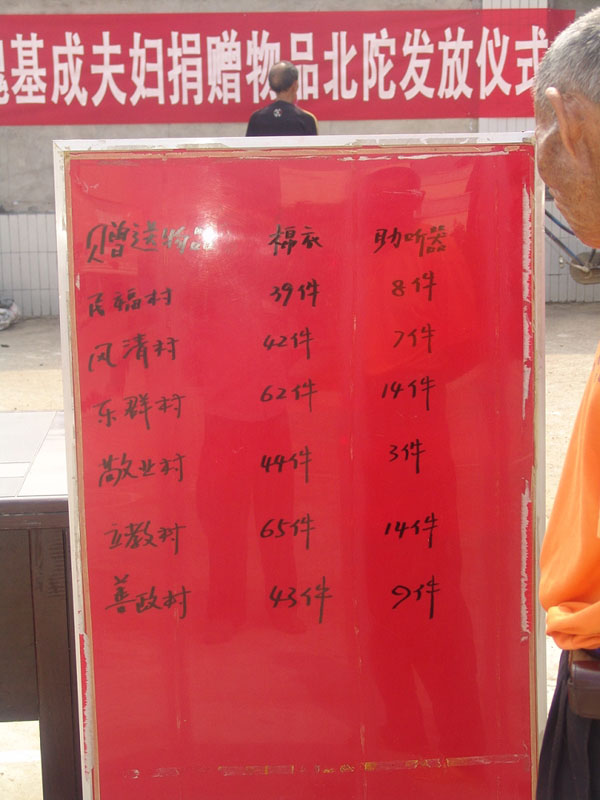 基成夫妇捐赠物品北陀发放仪式
赠送物品 棉衣 助听器
民福村 39件 8件
风清村 42件 7件
乐群村 62件 14件
敬业村 44件 3件
立教村 65件 14件
善政村 43件 9件